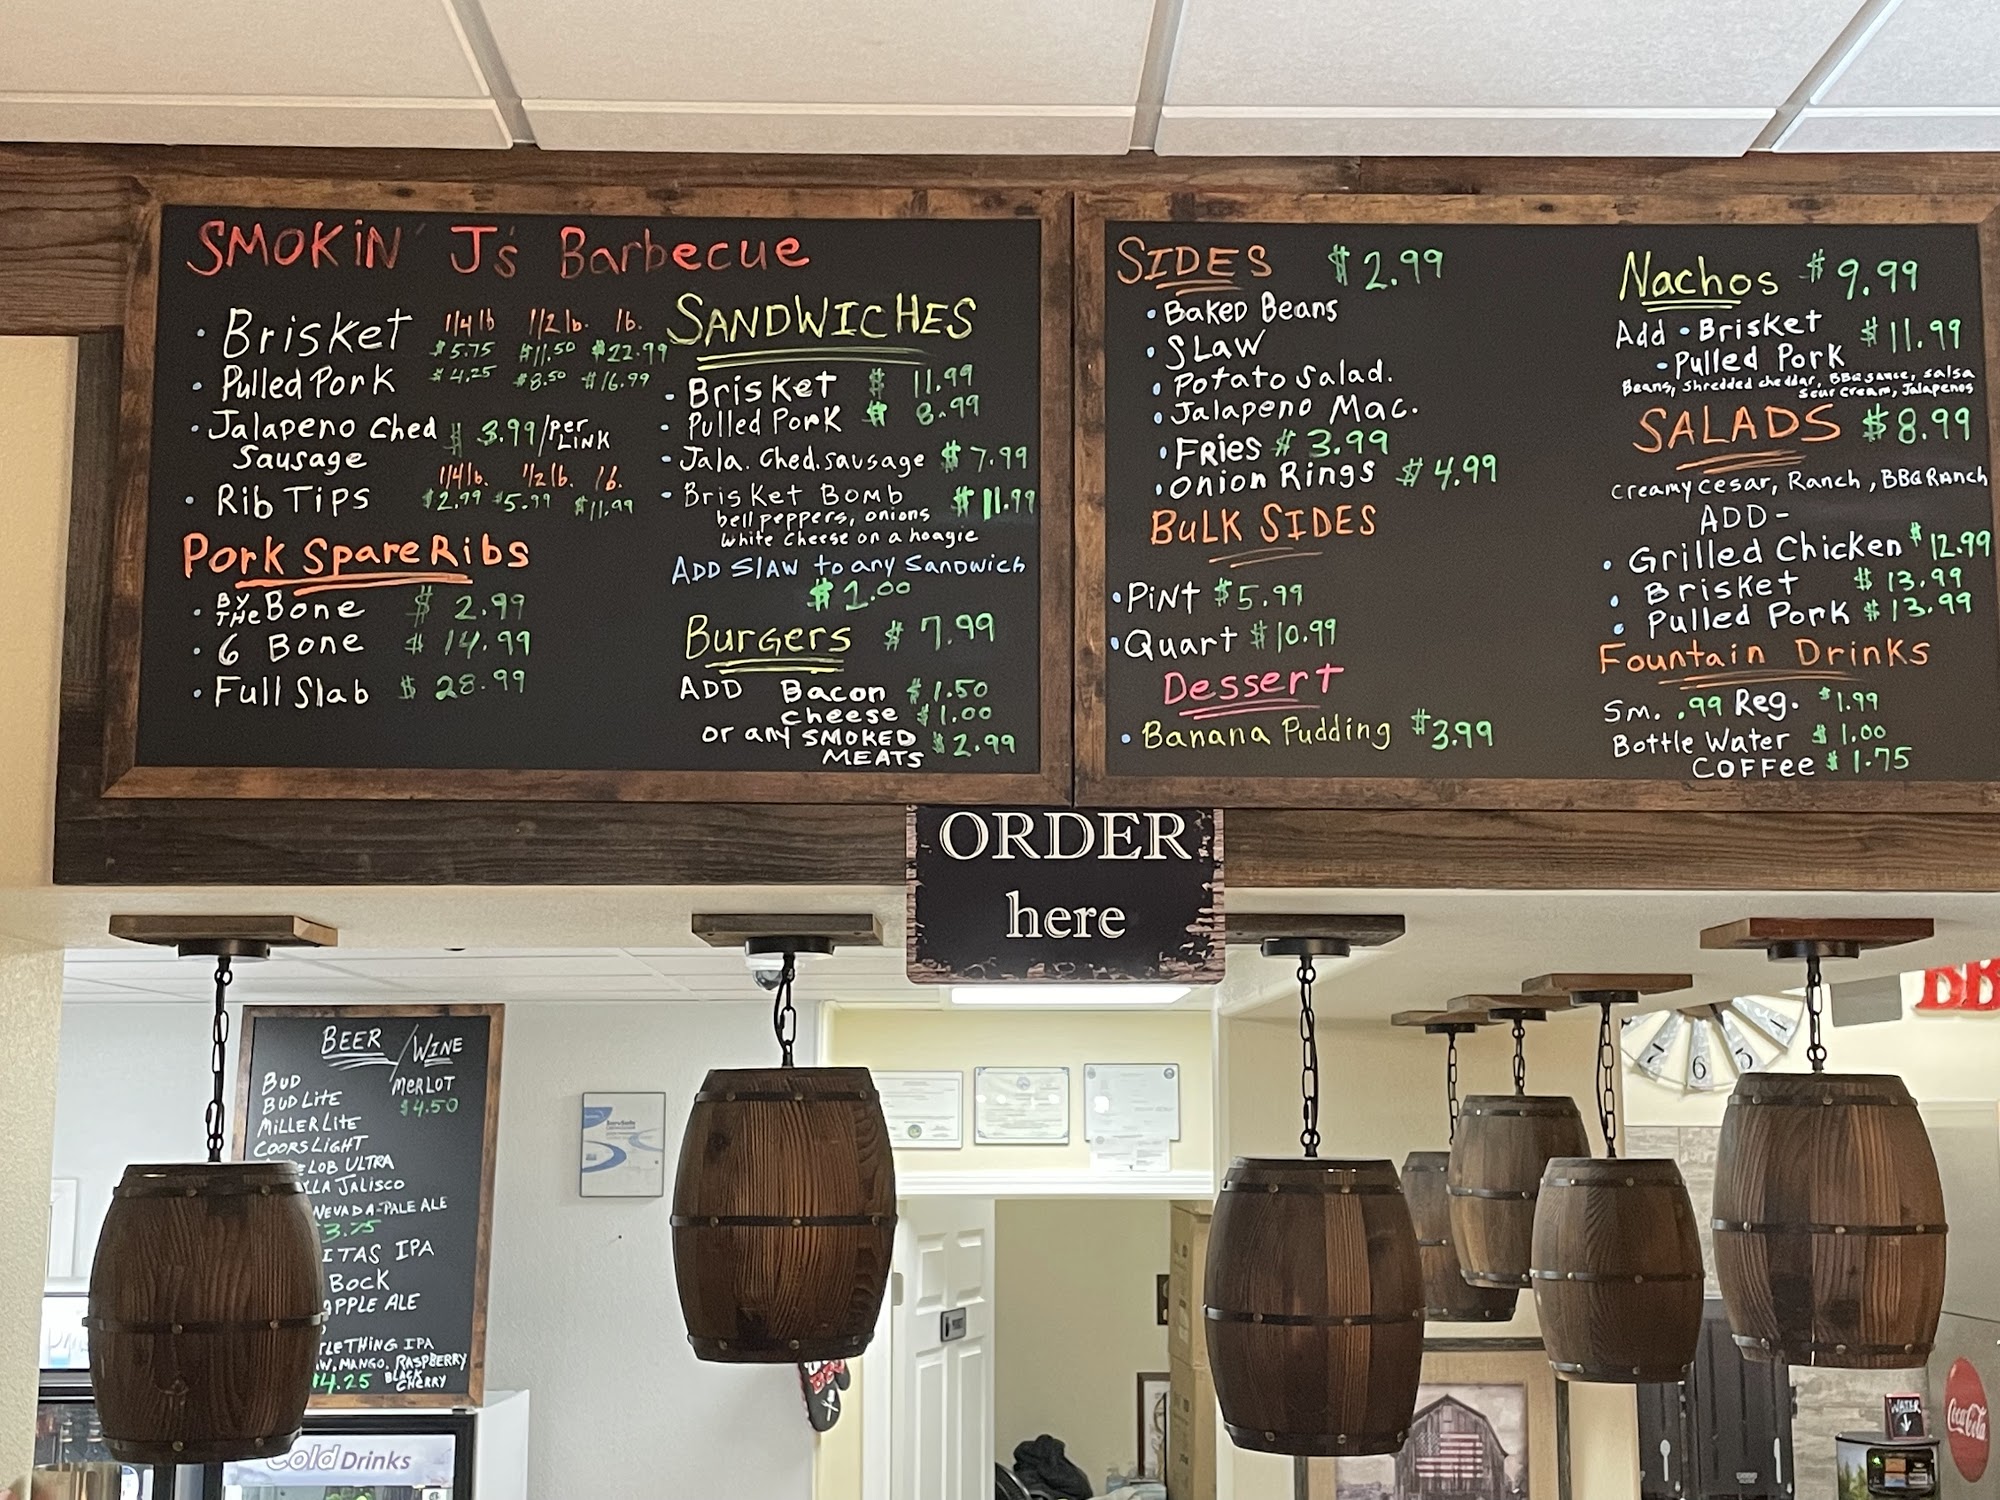 SMOKiN' J's Barbecue
Brisket 1/4 lb 1/2 lb. lb.
$5.75 $11.50 $22.99
Pulled Pork $4.25 $8.50 $16.99
Jalapeno Ched $3.99/Per LINK
Sausage
1/4 lb. 1/2 lb. lb.
Rib TiPS $2.99 $5.99 $11.99
Pork Spare Ribs
BY THe Bone $2.99
6 Bone $14.99
Full Slab $28.99
SANDWICHES
Brisket $11.99
Pulled Pork $8.99
Jala. Ched. Sausage $7.99
Brisket Bomb $11.99
bell peppers, onions
white cheese on a hoagie
ADD Slaw to any Sandwich
$1.00
Burgers $7.99
ADD Bacon $1.50
cheese $1.00
or any SMOKED $2.99
MEATS
SIDES $2.99
Baked Beans
SLaw
Potato Salad.
Jalapeno Mac.
Fries $3.99
Onion Rings $4.99
BULK SIDES
PiNt $5.99
Quart $10.99
Dessert
Banana Pudding $3.99
Nachos $9.99
Add • Brisket $11.99
• Pulled Pork
Beans, Shredded cheddar, BBQ sauce, salsa
sour cream, Jalapenos
SALADS $8.99
creamy cesar, Ranch, BBQ Ranch
ADD -
Grilled Chicken $12.99
Brisket $13.99
Pulled Pork $13.99
Fountain Drinks
Sm. .99 Reg. $1.99
Bottle Water $1.00
COFFee $1.75
ORDER
here
BEER / WINE
BUD MERLOT
BUD LiTE $4.50
MiLLER LiTE
COORS LiGHT
LOB ULTRA
LLA JALiSCO
NEVADA-PALE ALE
3.75
ITAS IPA
BOCK
APPLE ALE
TLE THiNG IPA
W, MANGO, RASPBERRY
$4.25 BLACK CHERRY
Cold Drinks
BB
7 6 5
WATER
Coca-Cola